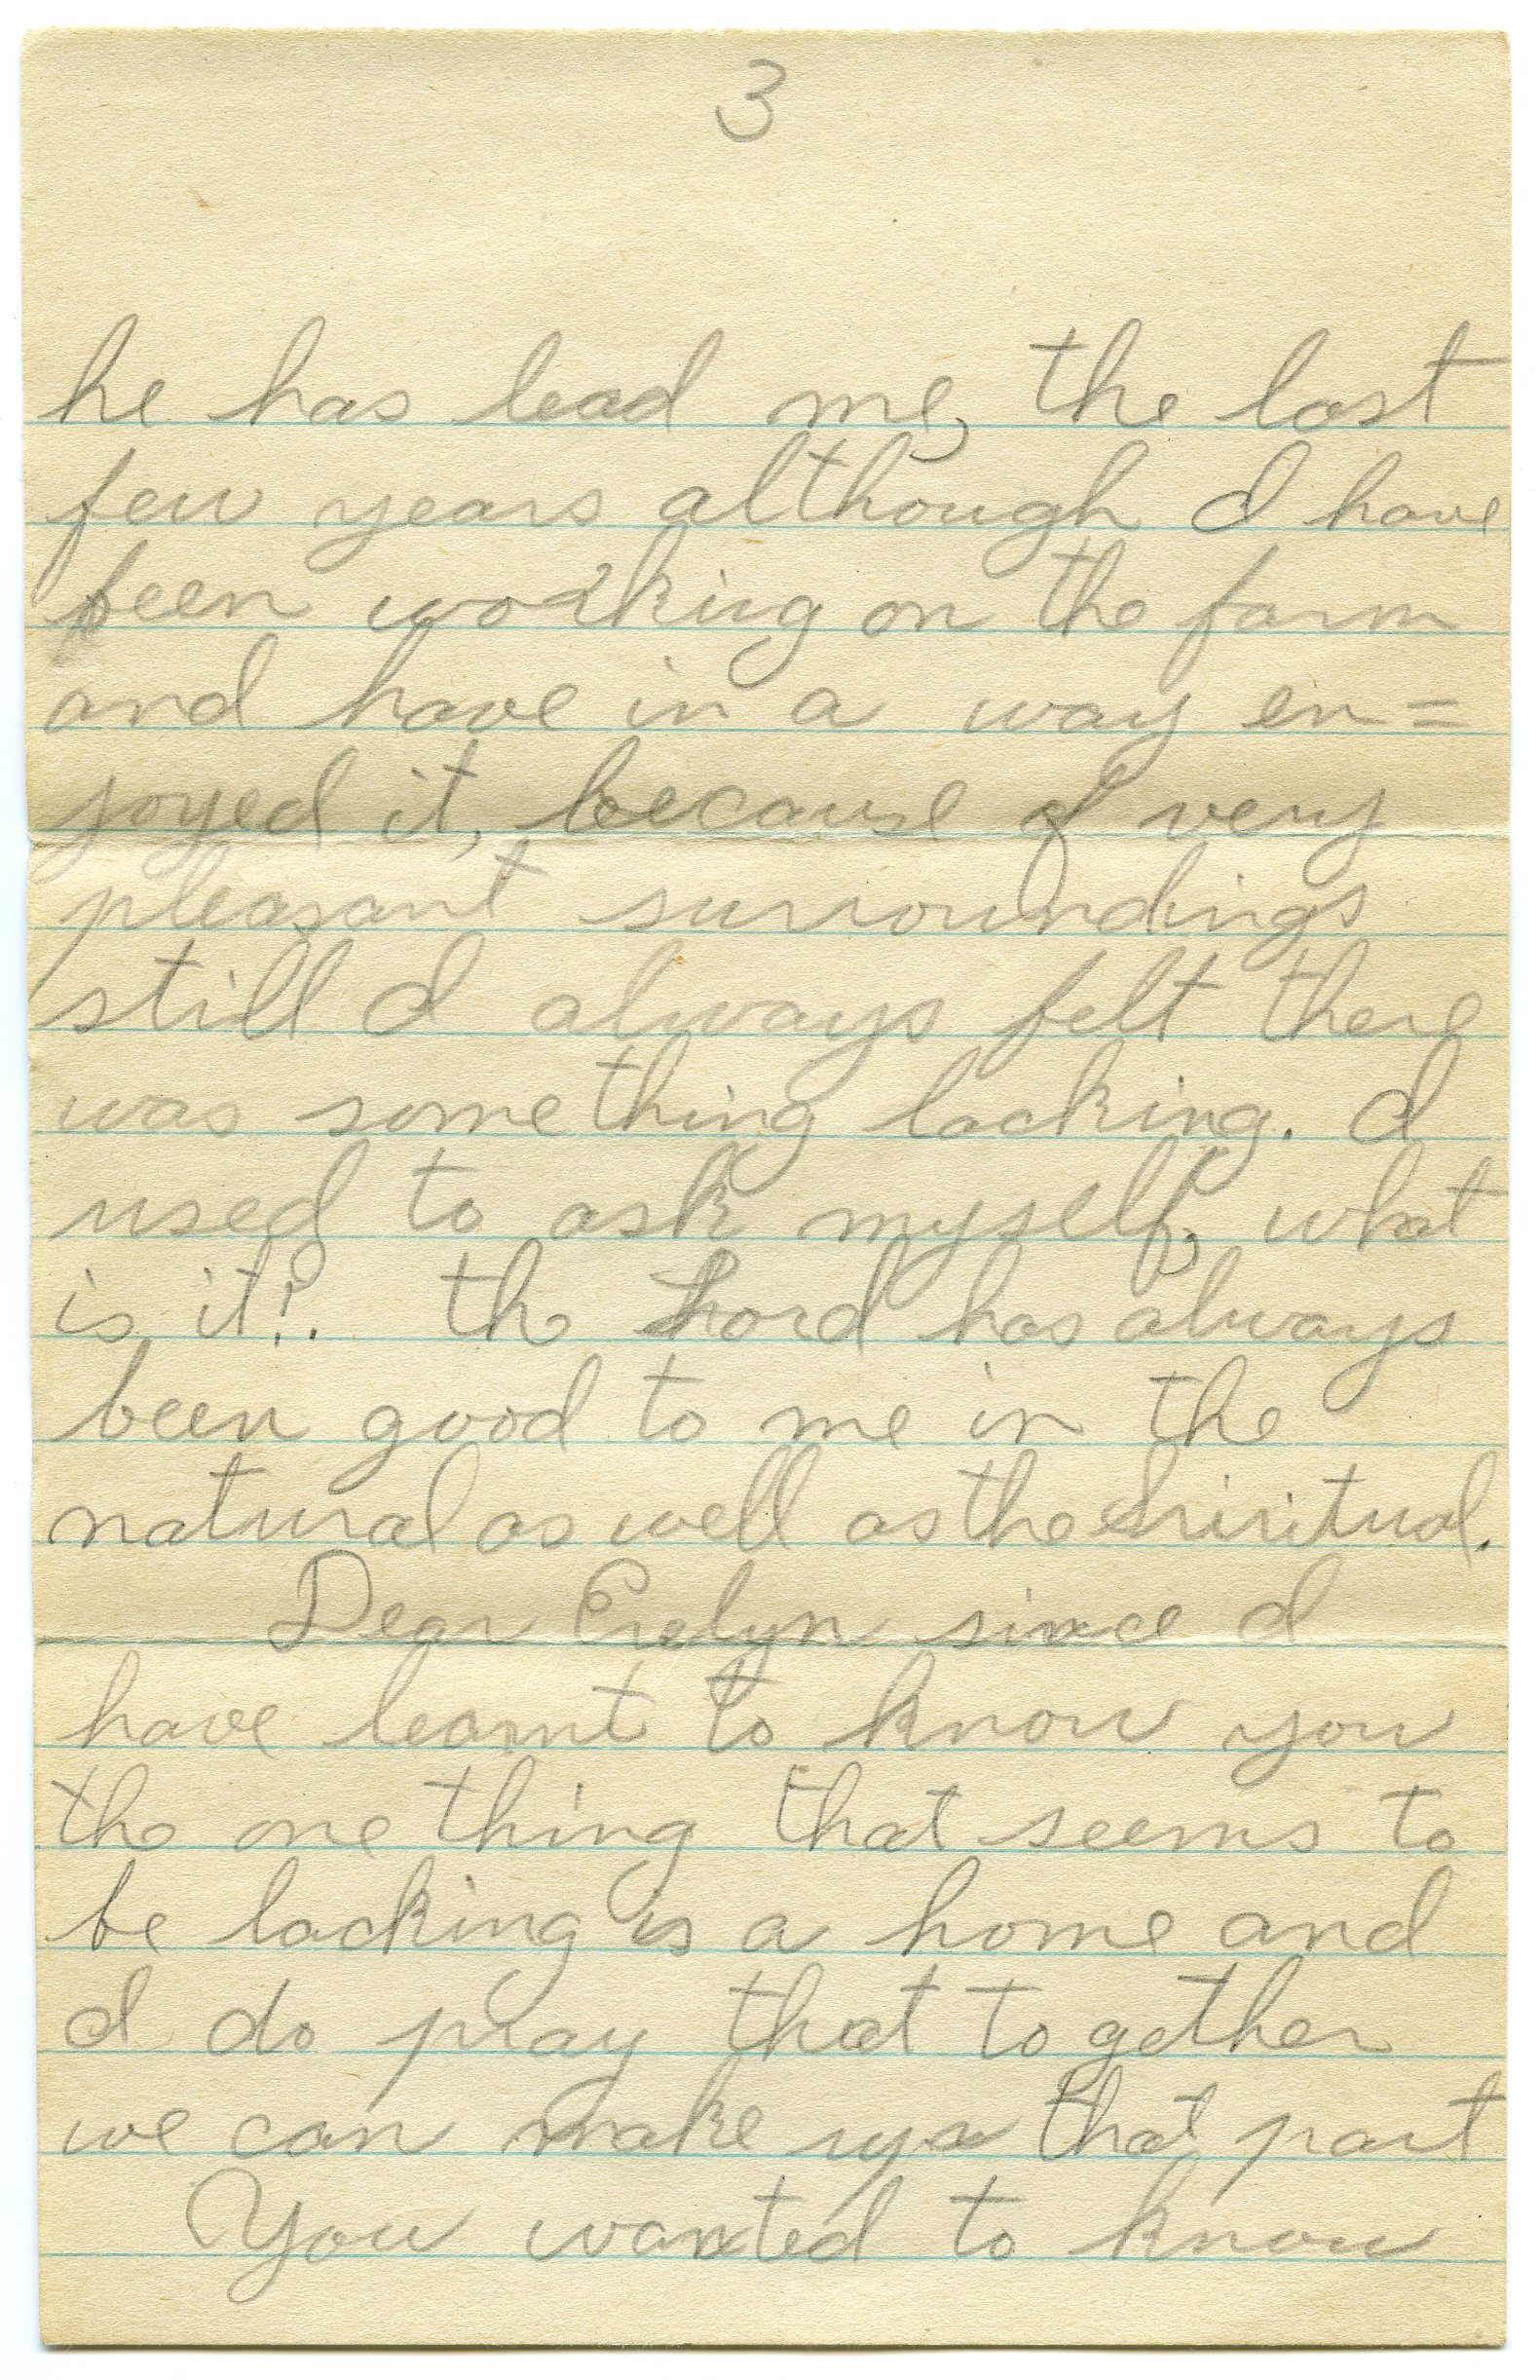 3
he has lead me, the last
few years although I have
been working on the farm
and have in a way en=
joyed it, because of very
pleasant surroundings
still I always felt there
was something lacking. I
used to ask myself, what
is it?. the Lord has always
been good to me in the
natural as well as the spiritual.
Dear Evelyn since I
have learnt to know you
the one thing that seems to
be lacking is a home and
I do pray that together
we can make up that part
You wanted to know